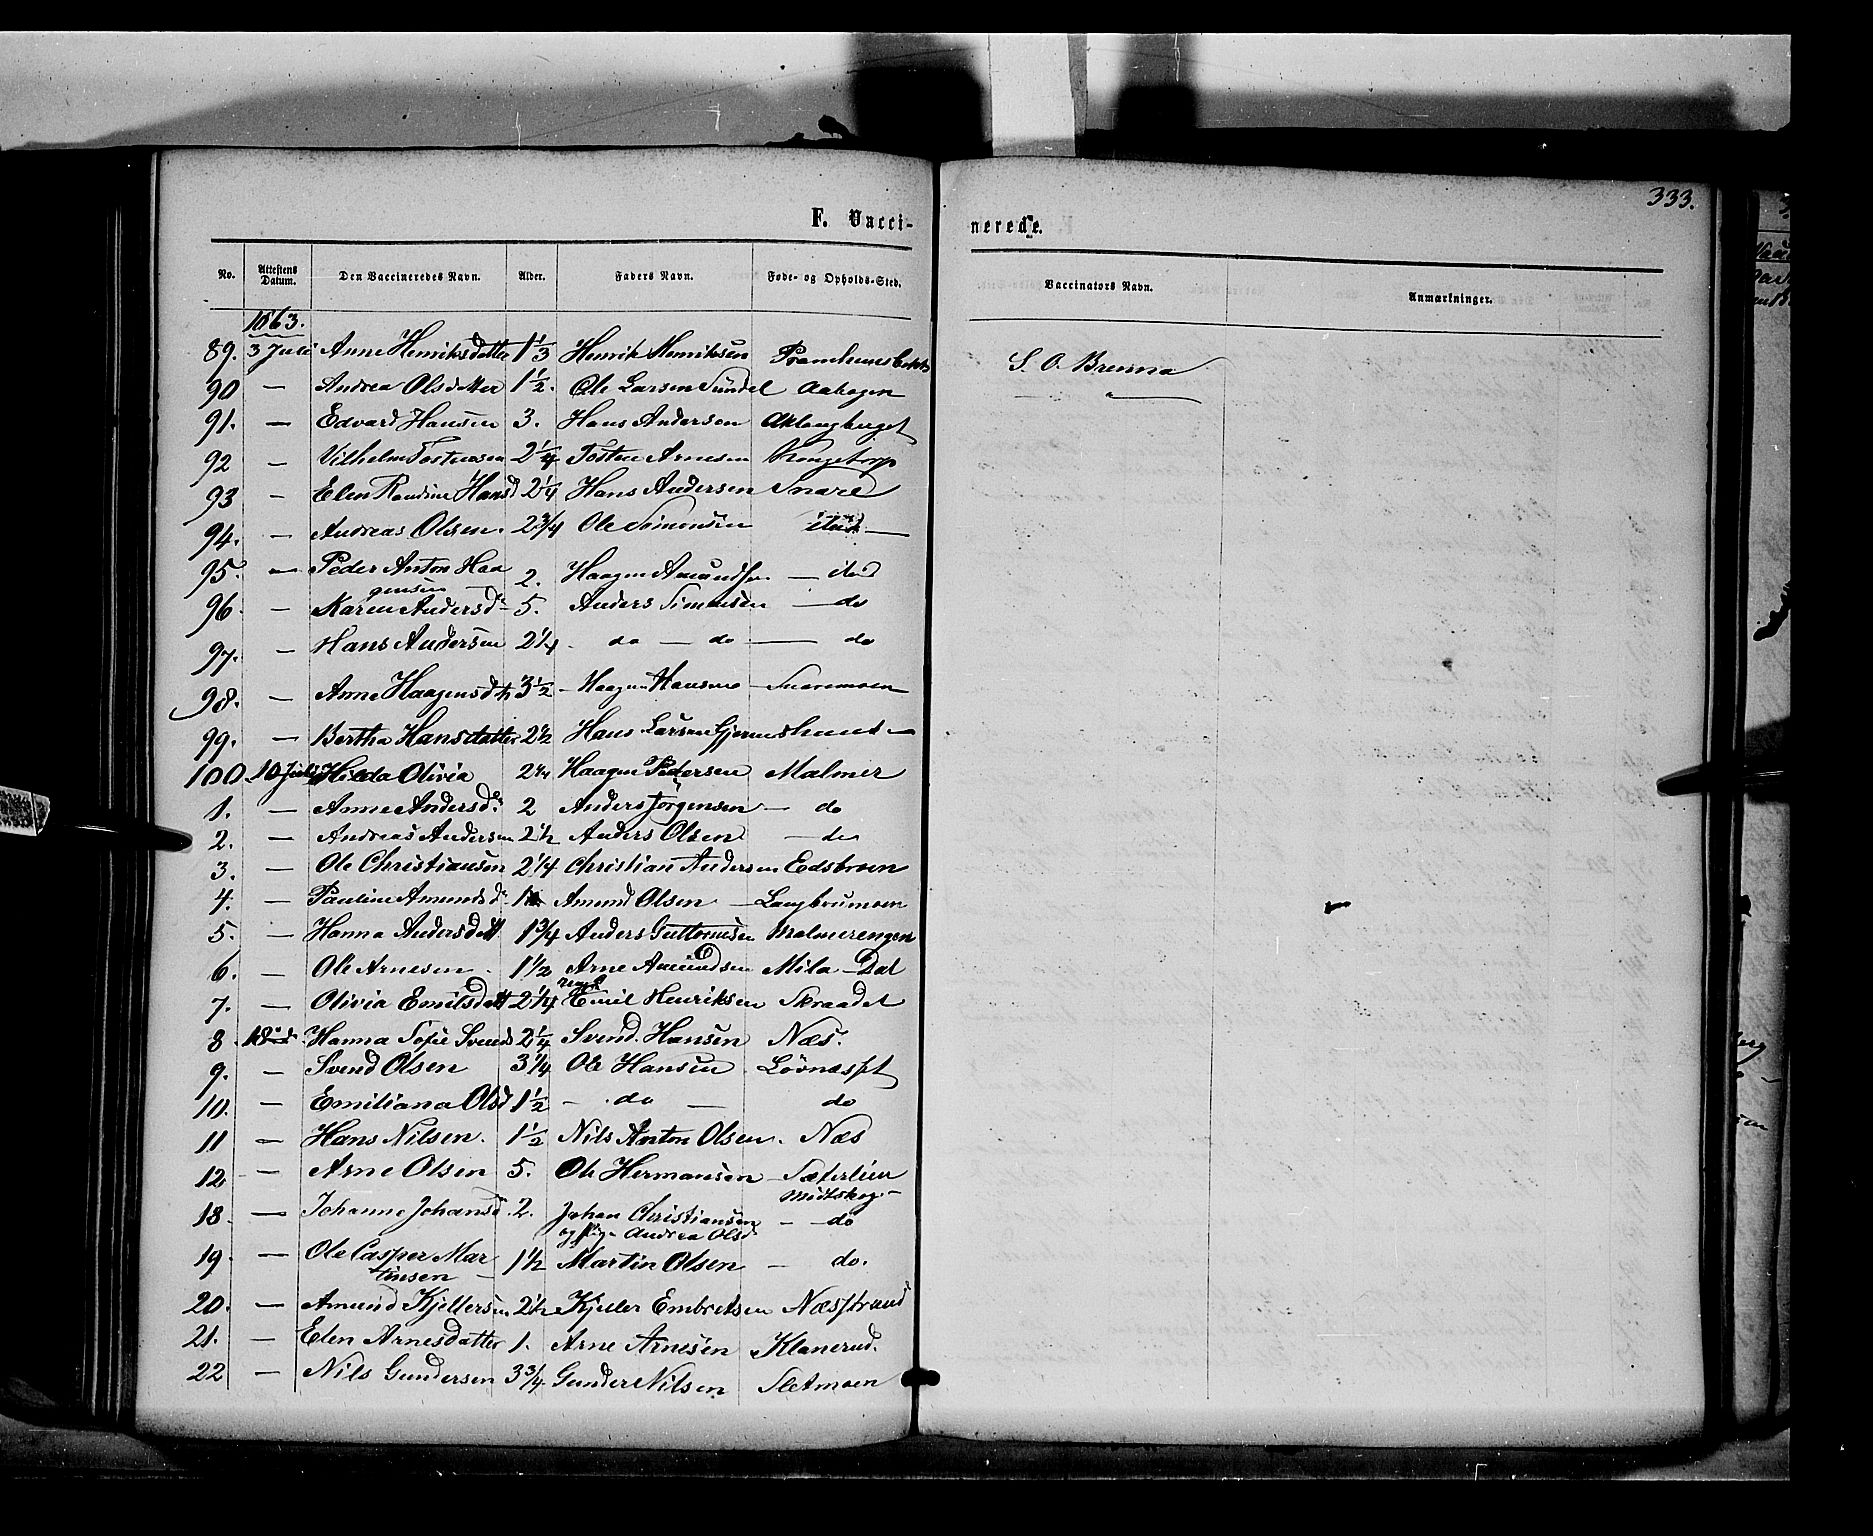 333.
F. Vacci-
nerede.
No. Attestens Datum. Den Vaccineredes Navn. Alder. Faders Navn. Føde- og Opholds-Sted.
Vaccinators Navn. Anmærkninger.
1863.
89. 3 Juli Anne Henriksdatter 1 1/3 Henrik Henriksen
S. O. Brenna
90 — Andrea Olsdatter 1 1/2. Ole Larsen Sundet Aahagen
91. — Edvard Hansen 3. Hans Andersen Aklangberget
92 — Vilhelm Tostensen 2 1/4 Tosten Arnesen Kongstorp
93 — Elen Randine Hansd 2 1/4 Hans Andersen Snare
94. — Andreas Olsen. 2 3/4 Ole Simonsen —
95. — Peder Anton Haa
gensen 2. Haagen Amundsen —
96. — Karen Andersd 5. Anders Simonsen — do
97. — Hans Andersen 2 1/4 do — do — do
98. — Anne Haagensdtr 3 1/2 Haagen Hansen Snaremoen
99. — Bertha Hansdatter 2 1/2 Hans Larsen Gjermshuset —
100 10 Juli Hilda Olivia 2 1/4 Haagen Pedersen Malmer
1. — Anne Andersd. 2 Anders Jørgensen — do
2. — Andreas Andersen 2 1/2 Anders Olsen — do
3. — Ole Christiansen 2 1/4 Christian Andersen Edsbroen
4. — Pauline Amundsd. 1 Amund Olsen — Langbrumoen
5. — Hanna Andersdatt 1 3/4 Anders Guttormsen Malmerengen
6. — Ole Arnesen 1 1/2 Arne Amundsen Mila-Dal
7. — Olivia Emilsdatt 2 1/4 Emil Henriksen Skraadet
8 18 Hanna Sofie Svends 2 1/4 Svend Hansen Næs.
9. — Svend Olsen 3 1/4 Ole Hansen Løvnæspt
10. — Emiliana Olsd 1 1/2 — do — do
11 — Hans Nilsen. 1 1/2 Nils Anton Olsen. Næs
12 — Arne Olsen 5. Ole Hermansen Sæterlien
Midtskog —
18. — Johanne Johansd. 2. Johan Christiansen — do
og pige Andrea Olsd
19. — Ole Casper Mar
tinsen — 1 1/2 Martin Olsen — do.
20. — Amund Kjellersen 2 1/2 Kjeller Embretsen Næsstrand
21. — Elen Arnesdatter 1. Arne Arnesen Klanerud.
22 — Nils Gundersen 3 3/4 Gunder Nilsen Sletmoen